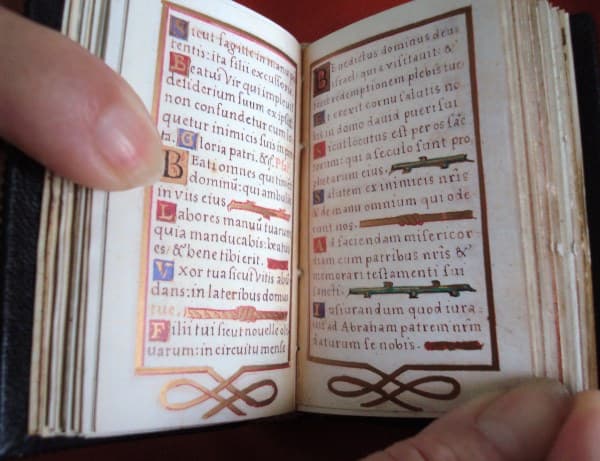 Sicut sagitte in manu po
tentis: ita filii excussoru
Beatus vir qui impleuit
desiderium suum ex ipsis
non confundetur cum lo
quetur inimicis suis in por
ta. Gloria patri. &
Beati omnes qui timent
dominū: qui ambulāt
in viis eius.
Labores manuū tuarum
quia manducabis: beatus
es/ & bene tibi erit.
Vxor tua sicut vitis abū
dans: in lateribus domus
tue.
Filii tui sicut nouelle oli
uarum: in circuitu mense
Benedictus dominus deus
israel: quia visitauit &
fecit redemptionem plebis tue:
Et erexit cornu salutis no
bis in domo dauid pueri sui
Sicut locutus est per os sāc
torum: qui a seculo sunt pro
phetarum eius.
Salutem ex inimicis nr̄is
& de manu omnium qui ode
runt nos.
Ad faciendam misericor
diam cum patribus nr̄is &
memorari testamenti sui
sancti.
Iusiurandum quod iura
uit ad Abraham patrem nr̄m
daturum se nobis.